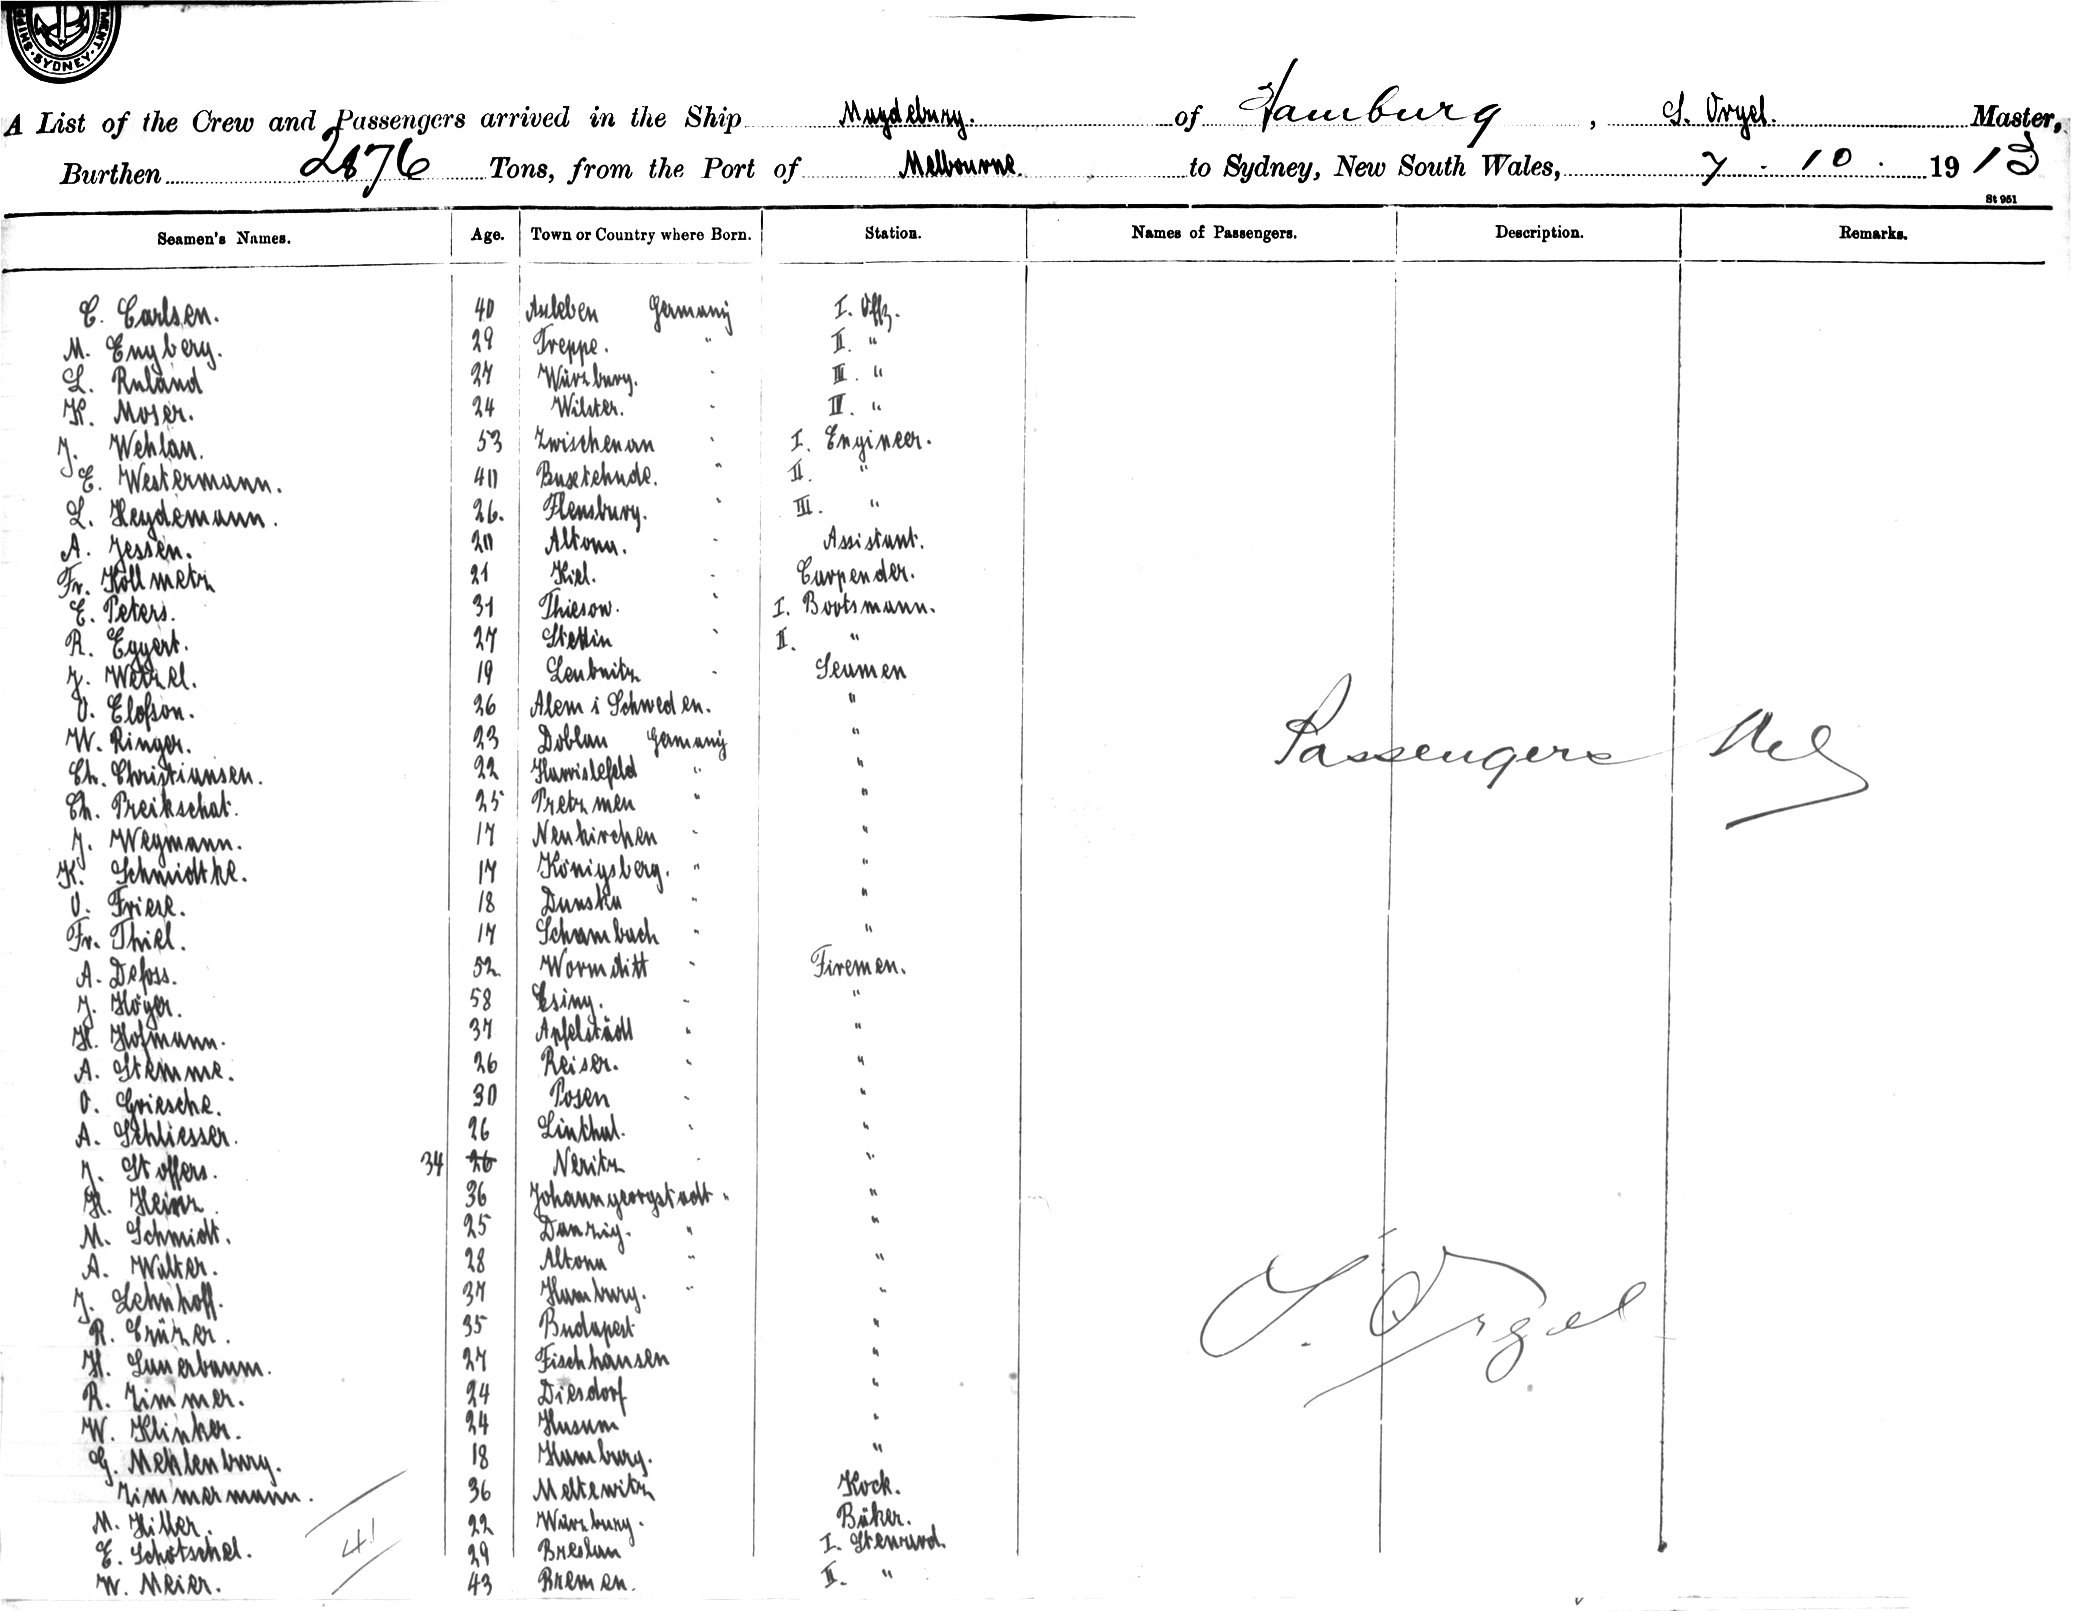 SYDNEY
A List of the Crew and Passengers arrived in the Ship Magdeburg. of Hamburg, S. Orgel. Master,
Burthen 2876 Tons, from the Port of Melbourne. to Sydney, New South Wales, 7. 10. 1913
St 951
Seamen's Names. Age. Town or Country where Born. Station. Names of Passengers. Description. Remarks.
C. Carlsen. 40 Auleben Germany I. Offz.
M. Engberg. 29 Treppe. " II. "
L. Ruland 27 Würzburg. " III. "
K. Moser. 24 Wilster. " IV. "
J. Wehlau. 53 Zwischenan " I. Engineer.
E. Westermann. 40 Buxtehude. " II. "
L. Heydemann. 26. Flensburg. " III. "
A. Jessen. 20 Altona. " Assistant.
Fr. Kollmetz 21 Kiel. " Carpender.
E. Peters. 31 Thiesow. " I. Bootsmann.
R. Eggert. 27 Stettin " II. "
J. Wetzel. 19 Leubnitz " Seamen
O. Elofson. 26 Alem i Schweden. "
W. Ringer. 23 Doblau Germany "
Ch. Christiansen. 22 Hawislefeld " "
Ch. Preikschat. 25 Pretzmen " "
J. Wegmann. 17 Neukirchen " "
K. Schmidtke. 17 Königsberg. " "
O. Friese. 18 Dunska " "
Fr. Thiel. 17 Schambach " "
A. Defoss. 52 Wormditt " Firemen.
J. Höyer. 58 Esing. " "
H. Hofmann. 37 Apfelstädt " "
A. Stemme. 26 Reiser. " "
O. Griesche. 30 Posen " "
A. Schliesser. 26 Linthal. " "
J. Stoffers. 34 26 Neritz " "
H. Heinz 36 Johanngeorgstadt " "
M. Schmidt. 25 Danzig. " "
A. Walter. 28 Altona " "
J. Lehnhoff. 37 Hamburg. " "
R. Crüzer. 35 Budapest "
H. Lauerbaum. 27 Fischhausen "
R. Zimmer. 24 Diesdorf "
W. Klinker. 24 Husum "
G. Mehlenburg. 18 Hamburg. "
Zimmermann. 36 Meltewitz Kock.
M. Hiller. 22 Würzburg. Bäker.
E. Schötschel. 29 Breslau I. Steward.
W. Meier. 43 Bremen. II. "
41
Passengers Nil
S. Orgel